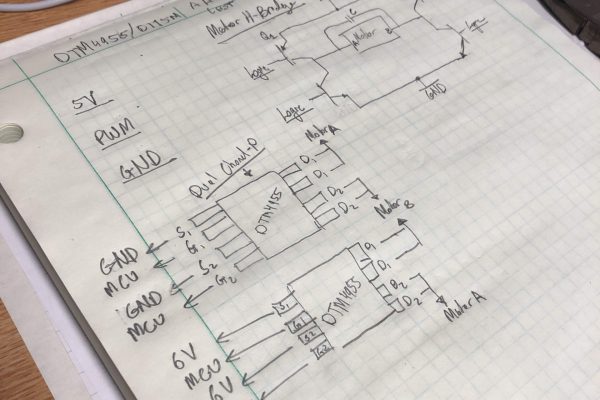 Motor H-Bridge
Q1
C
Motor
Logic
Logic
Logic
GND
5V
PWM
GND
Dual Channel-P
DTM4955
S1
G1
S2
G2
D1
D1
D2
D2
Motor A
Motor B
GND
MCU
GND
MCU
DTM4955
S1
G1
S2
G2
D1
D1
D2
D2
Motor A
6V
MCU
6V